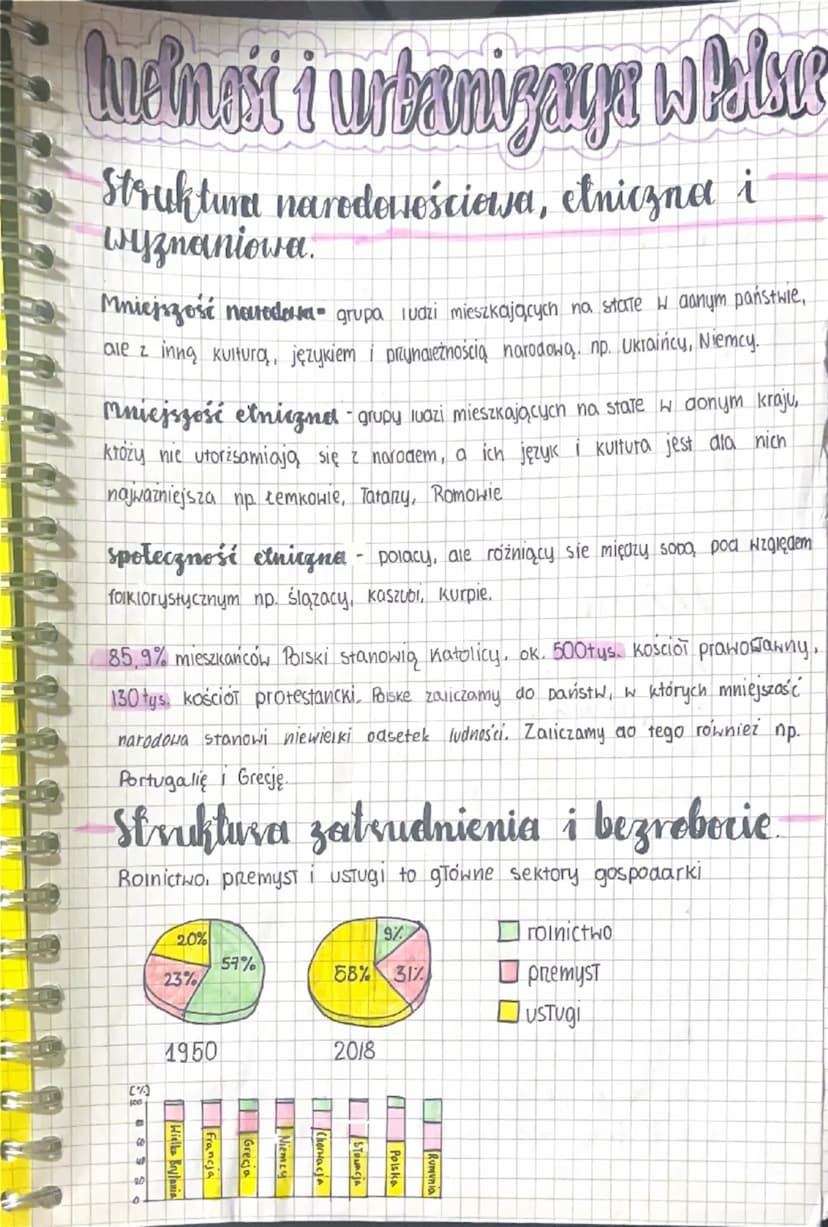 Ludność i urbanizacja w Polsce
Struktura narodowościowa, etniczna i
wyznaniowa.
Mniejszość narodowa- grupa ludzi mieszkających na stałe w danym państwie,
ale z inną kulturą, językiem i przynależnością narodową. np. Ukraińcy, Niemcy.
Mniejszość etniczna - grupy ludzi mieszkających na stałe w danym kraju,
którzy nie utorżsamiają się z narodem, a ich język i kultura jest dla nich
najważniejsza np. Łemkowie, Tatarzy, Romowie
społeczność etniczna - polacy, ale różniący sie między sobą pod względem
folklorystycznym np. ślązacy, kaszubi, kurpie.
85,9% mieszkańców Polski stanowią katolicy, ok. 500tys. kościół prawosławny,
130 tys. kościół protestancki. Polske zaliczamy do państw, w których mniejszość
narodowa stanowi niewielki odsetek ludności. Zaliczamy do tego również np.
Portugalię i Grecję.
Struktura zatrudnienia i bezrobocie.
Rolnictwo, przemysł i usługi to główne sektory gospodarki
20% 57% 23%
9% 58% 31%
rolnictwo
przemysł
usługi
1950 2018
[%]
100
80
60
40
20
0
Wielka Brytania
Francja
Grecja
Niemcy
Chorwacja
Słowacja
Polska
Rumunia